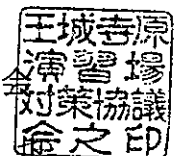 会
王城寺原
演習場
対策協議
会之印